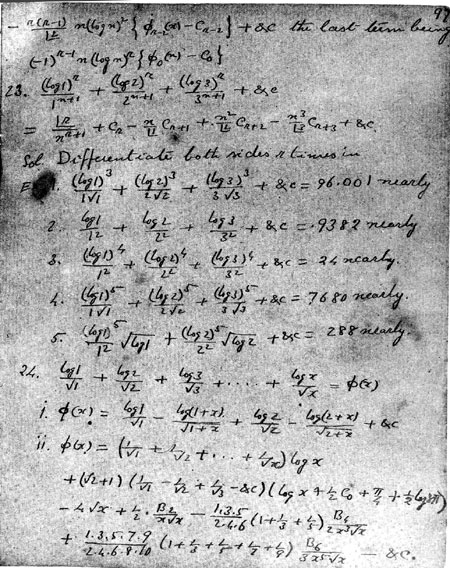 97
- r(r-1)/|2 n(log n)² {φ_{r-2}(x) - C_{r-2}} + &c the last term being
(-1)^{r-1} n(log n)^r {φ_0(x) - C_0}
23. (log1)^r/1^{n+1} + (log2)^r/2^{n+1} + (log3)^r/3^{n+1} + &c
= |r/n^{r+1} + C_r - n/|1 C_{r+1} + n²/|2 C_{r+2} - n³/|3 C_{r+3} + &c.
Sol Differentiate both sides r times in
1. (log1)³/1√1 + (log2)³/2√2 + (log3)³/3√3 + &c = 96.001 nearly
2. log1/1² + log2/2² + log3/3² + &c = .9382 nearly
3. (log1)⁴/1² + (log2)⁴/2² + (log3)⁴/3² + &c = 24 nearly.
4. (log1)⁵/1√1 + (log2)⁵/2√2 + (log3)⁵/3√3 + &c = 7680 nearly.
5. (log1)⁵/1² √log1 + (log2)⁵/2² √log2 + &c = 288 nearly.
24. log1/√1 + log2/√2 + log3/√3 + .... + log x/√x = φ(x)
i. φ(x) = log1/√1 - log(1+x)/√(1+x) + log2/√2 - log(2+x)/√(2+x) + &c
ii. φ(x) = (1/√1 + 1/√2 + .. + 1/√x) log x
+ (√2+1)(1/√1 - 1/√2 + 1/√3 - &c)(log x + ½ C_0 + π/4 + ½ log 8π)
- 4√x + ½ · B_2/x√x - 1.3.5/2.4.6 (1 + ⅓ + ⅕) B_4/2x³√x
+ 1.3.5.7.9/2.4.6.8.10 (1 + ⅓ + ⅕ + 1/7 + 1/9) B_6/3x⁵√x - &c.